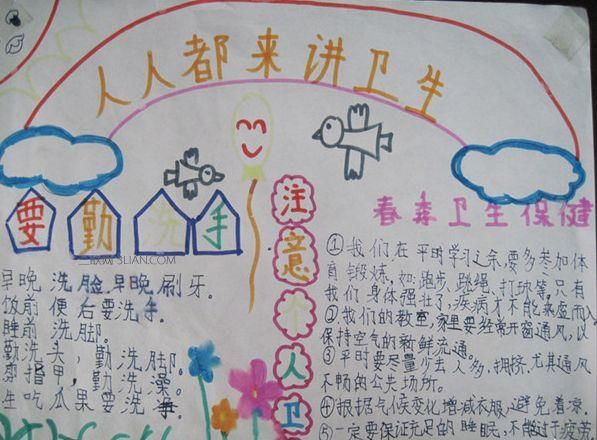 人人都来讲卫生
要勤洗手
三联网 3LIAN.COM
早晚洗脸早晚刷牙。
饭前便右要洗手.
睡前洗脚。
勤洗头，勤洗脚。
指甲，勤洗澡。
生吃瓜果要洗
注意个人卫
春季卫生保健
①我们在平时学习之余要多参加体
育锻炼,如:跑步、跳绳、打球等,只有
我们身体强壮了,疾病才不能乘虚而入
②我们的教室,家里要经常开窗通风,以
保持空气的新鲜流通。
③平时要尽量少去人多、拥挤、尤其通风
不畅的公共场所。
④根据气候变化增减衣服,避免着凉.
⑤一定要保证充足的睡眠,不能过于疲劳